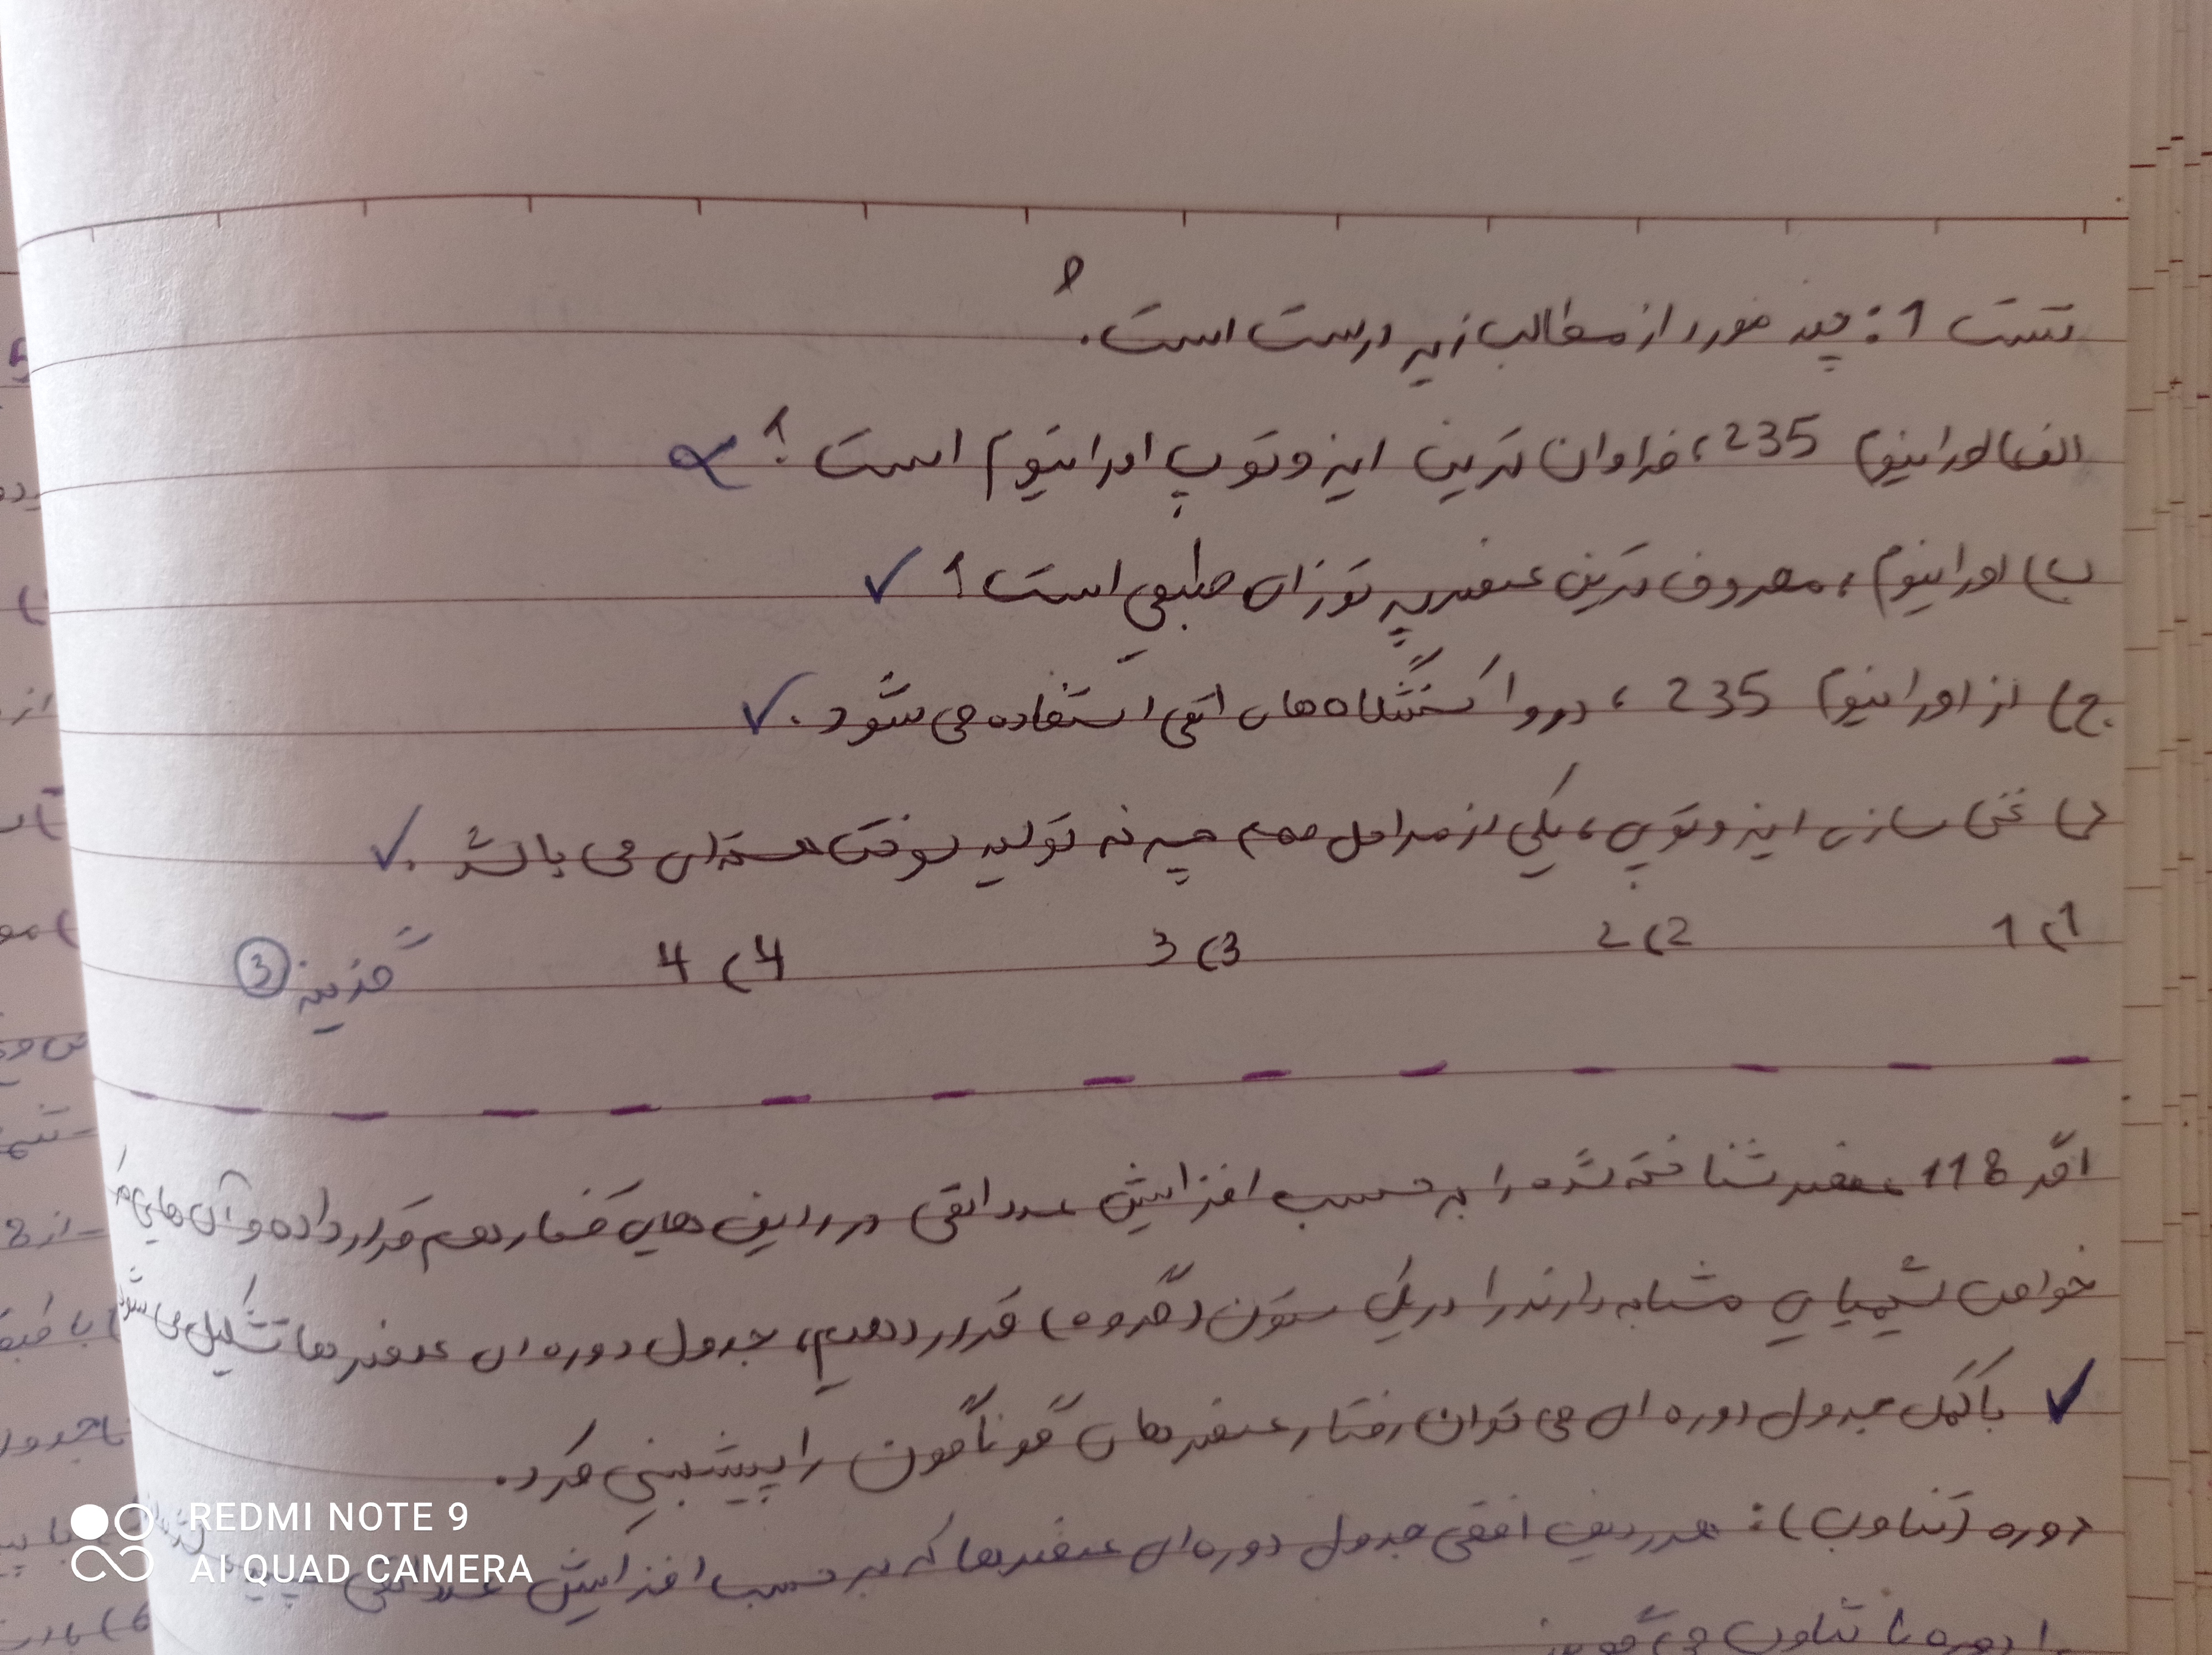 تست 1: چند مورد از مطالب زیر درست است.
الف) اورانیوم 235، فراوان ترین ایزوتوپ اورانیوم است؟
ب) اورانیوم، معروف ترین عنصر پرتوزای طبیعی است؟ ✓
ج) از اورانیوم 235، در واکنشگاه های اتمی استفاده می شود. ✓
د) غنی سازی ایزوتوپی، یکی از مراحل مهم چرخه تولید سوخت هسته ای می باشد. ✓
1) 1 2) 2 3) 3 4) 4 گزینه 3
اگر 118 عنصر شناخته شده را بر حسب افزایش عدد اتمی در ردیف های کنار هم قرار داده و آن هایی که
خواص شیمیایی مشابه دارند را در یک ستون (گروه) قرار دهیم، جدول دوره ای عنصرها تشکیل می شود
✓ با کمک جدول دوره ای می توان رفتار عنصرهای گوناگون را پیشبینی کرد.
دوره (تناوب): هر ردیف افقی جدول دوره ای عنصرها که بر حسب افزایش عدد اتمی
را دوره یا تناوب می گویند
REDMI NOTE 9
AI QUAD CAMERA